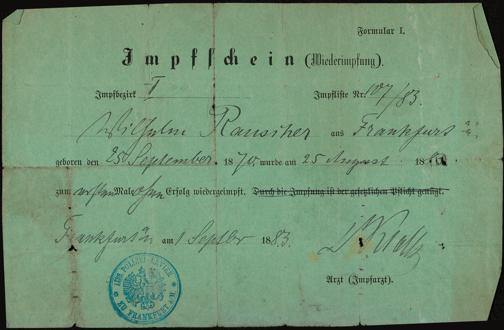 Formular I.
Impfschein (Wiederimpfung).
Impfbezirk I Impfliste Nr. 107/83.
Wilhelm Rauscher aus Frankfurt
geboren den 25 September 1870, wurde am 25 August 188
zum ersten Male ohne Erfolg wiedergeimpft. Durch die Impfung ist der gesetzlichen Pflicht genügt.
Frankfurt am 1 Septber 1883.
Arzt (Impfarzt).
KÖN. POLIZEI-REVIER
ZU FRANKFURT A/M